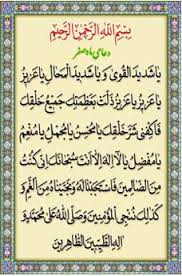 بِسْمِ اللهِ الرَّحْمٰنِ الرَّحيْمِ
دعای ماه صفر
يا شَديدَ الْقُوىٰ وَ يا شَديدَ الْمِحالِ يا عَزيزُ
يا عَزيزُ يا عَزيزُ ذَلَّتْ بِعَظَمَتِكَ جَميعُ خَلْقِكَ
فَاكْفِنى شَرَّ خَلْقِكَ يا مُحْسِنُ يا مُجْمِلُ يا مُنْعِمُ
يا مُفْضِلُ يا لا اِلٰهَ اِلاّ اَنْتَ سُبْحانَكَ اِنّى كُنْتُ
مِنَ الظّالِمينَ فَاسْتَجَبْنا لَهُ وَ نَجَّيْناهُ مِنَ الْغَمِّ وَ
كَذلِكَ نُنْجِى الْمُؤْمِنينَ وَ صَلَّى اللهُ عَلىٰ مُحَمَّدٍ وَ
الِهِ الطَّيِّبينَ الطّاهِرينَ